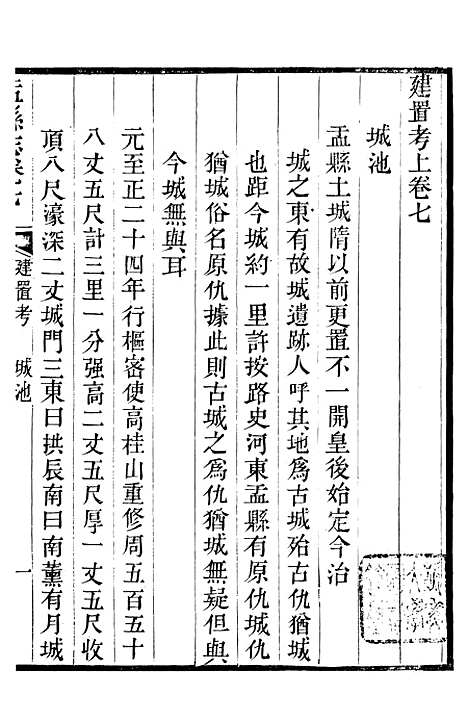 建置考上卷七
城池
盂縣土城隋以前更置不一開皇後始定今治
城之東有故城遺跡人呼其地為古城殆古仇猶城
也距今城約一里許按路史河東盂縣有原仇城仇
猶城俗名原仇據此則古城之為仇猶城無疑但與
今城無與耳
元至正二十四年行樞密使高桂山重修周五百五十
八丈五尺計三里一分强高二丈五尺厚一丈五尺收
頂八尺濠深二丈城門三東曰拱辰南曰南薰有月城
盂縣志卷七
建置考 城池
一